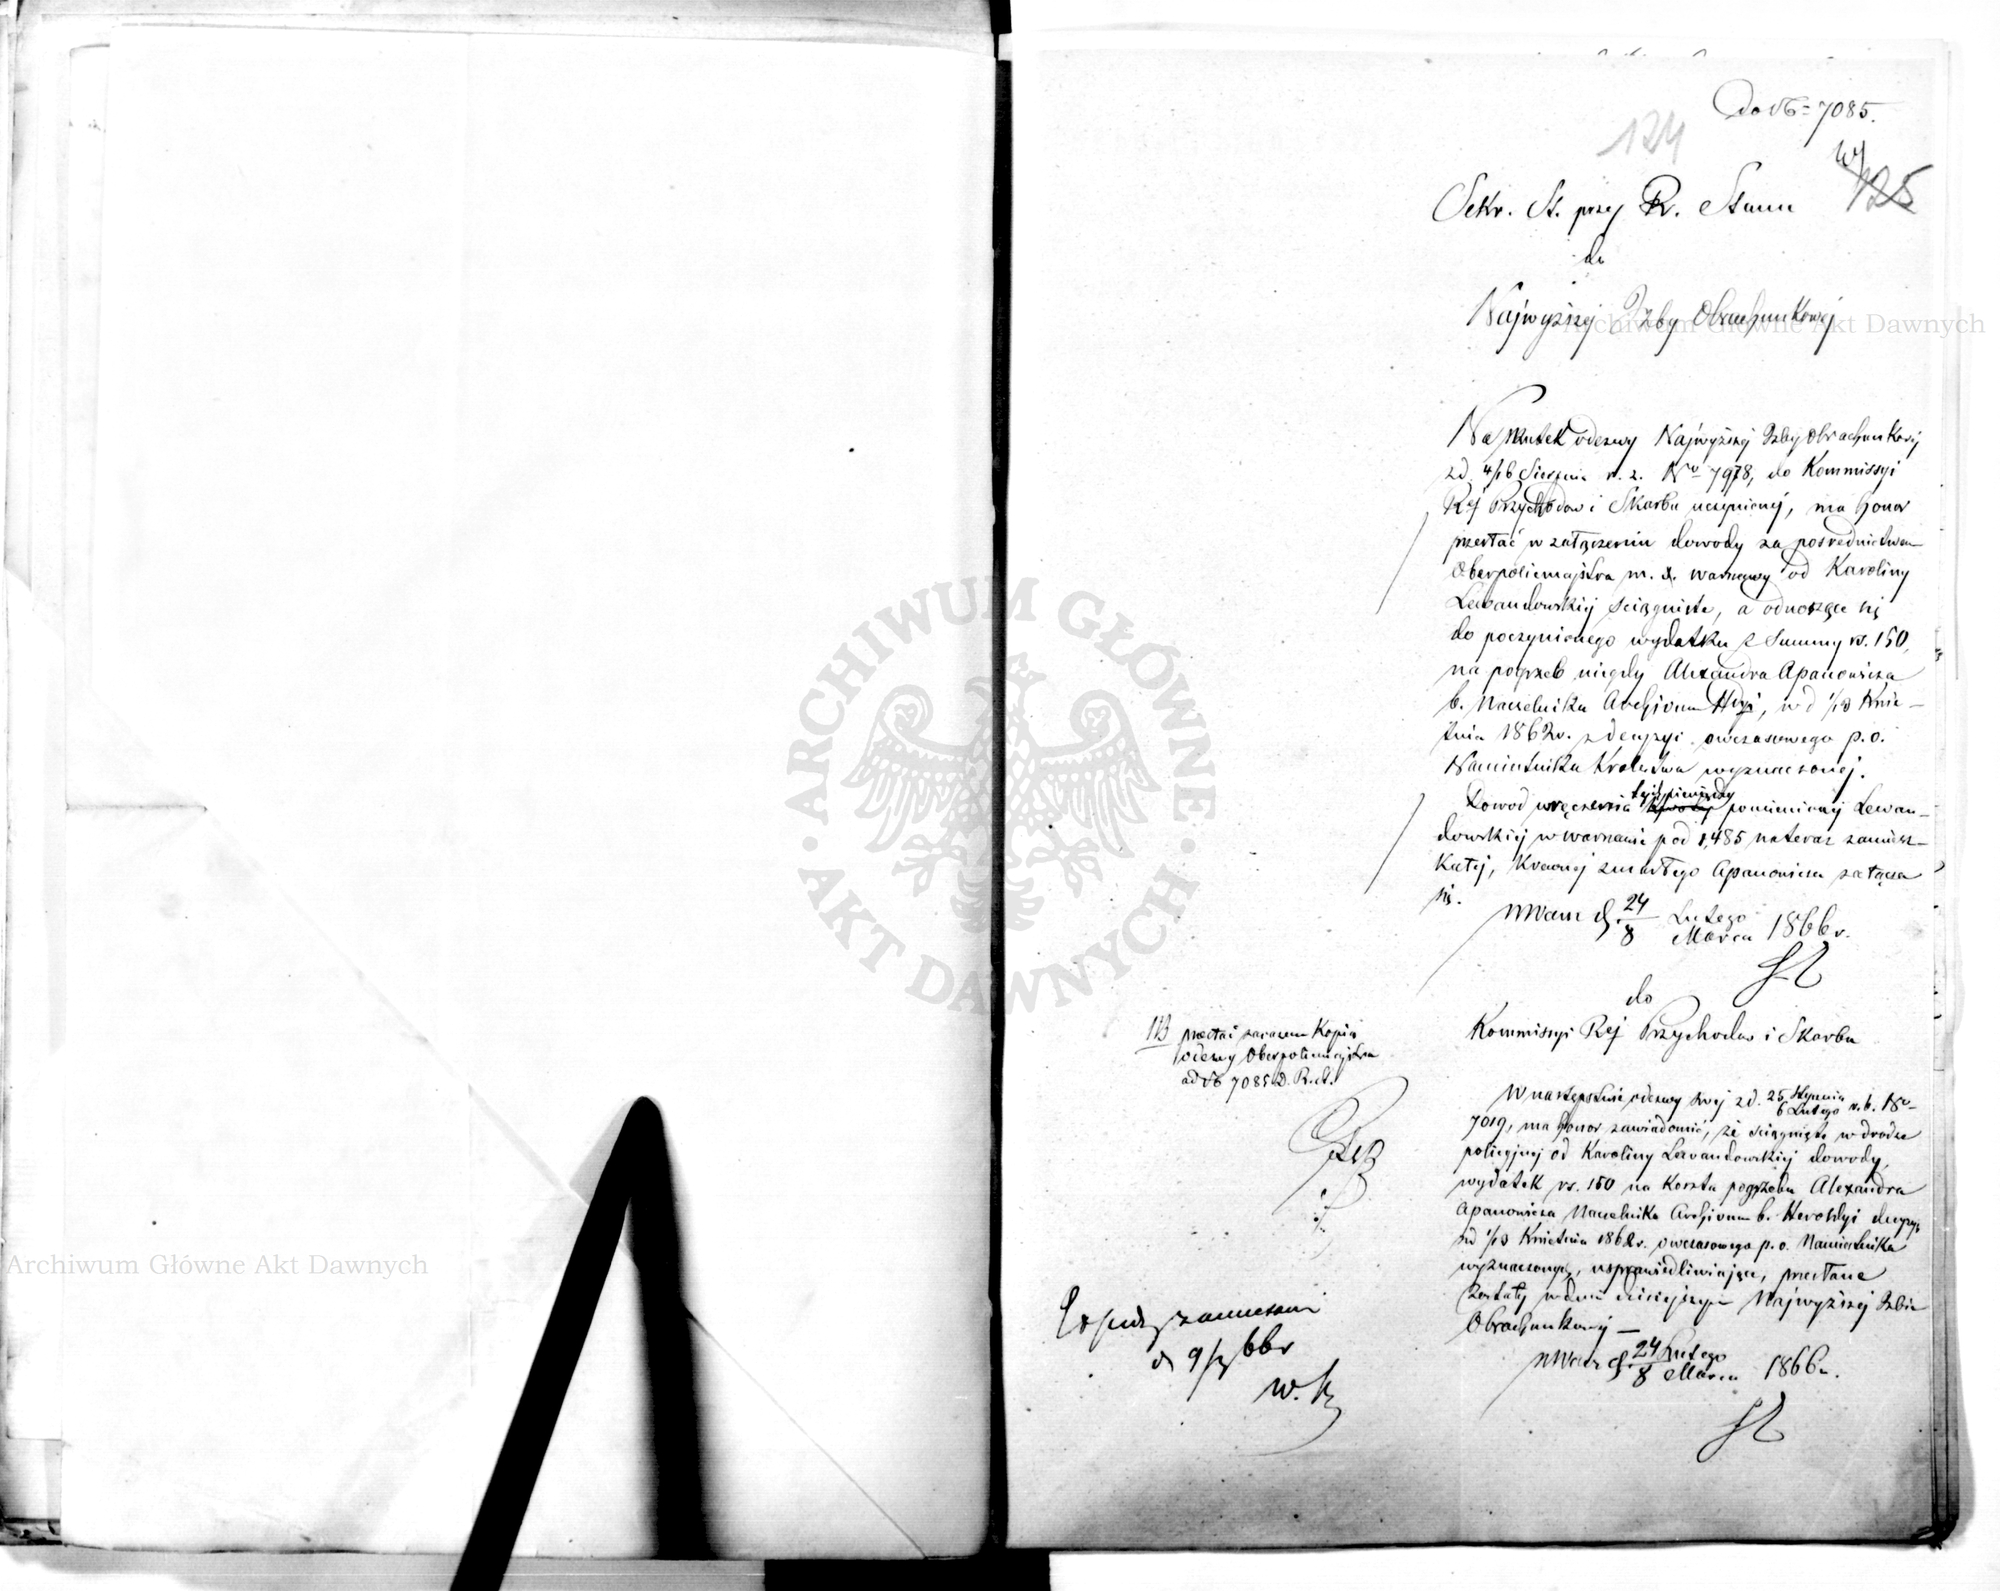 Do № 7085.
124
125
Sekr. St. przy R. Stanu
do
Najwyższej Izby Obrachunkowej
Na skutek odezwy Najwyższej Izby Obrachunkowej
z d. 4/16 Sierpnia r. z. No 7978, do Kommissyi
Rej Przychodow i Skarbu uczynionej, ma honor
przesłać w załączeniu dowody za pośrednictwem
Oberpolicmajstra m. Warszawy od Karoliny
Lewandowskiej ściągnięte, a odnoszące się
do poczynionego wydatku z Summy rs. 150,
na pogrzeb niegdy Alexandra Apanowicza
b. Naczelnika Archivum Hdyi, w d 1/13 Kwie-
tnia 1862 r. z decyzyi owczasowego p.o.
Namiestnika Krolestwa wyznaczonej.
Dowod wręczenia tych pieniędzy pomienionej Lewan-
dowskiej w Warszawie pod 1,485 na teraz zamiesz-
kałej, Krewnej zmarłego Apanowicza załącza
się.
w Warsz d. 24/8 Lutego/Marca 1866 r.
do
Kommissyi Rej Przychodow i Skarbu
NB przesłać zarazem Kopią
odezwy Oberpolicmajstra
ad № 7085 D. R. St.
W następstwie odezwy swej z d. 25 Stycznia/6 Lutego r. b. No
7019, ma honor zawiadomić, że ściągnięte w drodze
policyjnej od Karoliny Lewandowskiej dowody,
wydatek rs. 150 na koszta pogrzebu Alexandra
Apanowicza Naczelnika Archivum b. Heroldyi decyzyą
z d 1/13 Kwietnia 1862 r. owczasowego p. o. Namiestnika
wyznaczonych, usprawiedliwiające, przesłane
zostały w dniu dzisiejszym Najwyższej Izbie
Obrachunkowej —
w Warsz d. 24/8 Lutego/Marca 1866 r.
d 9/3 66 r
Archiwum Główne Akt Dawnych
Archiwum Główne Akt Dawnych
ARCHIWUM GŁÓWNE · AKT DAWNYCH ·